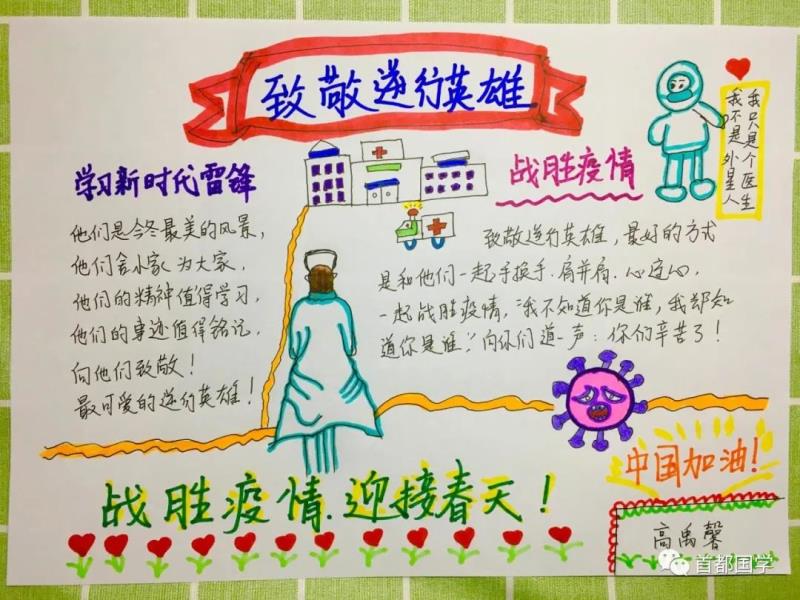 致敬逆行英雄
我只是个医生
我不是外星人
学习新时代雷锋
他们是今冬最美的风景,
他们舍小家为大家,
他们的精神值得学习,
他们的事迹值得铭记,
向他们致敬!
最可爱的逆行英雄!
战胜疫情
致敬逆行英雄,最好的方式
是和他们一起手挽手.肩并肩.心连心,
一起战胜疫情,“我不知道你是谁,我却知
道你是谁”向你们道一声:你们辛苦了!
中国加油!
战胜疫情.迎接春天!
高禹馨
首都国学